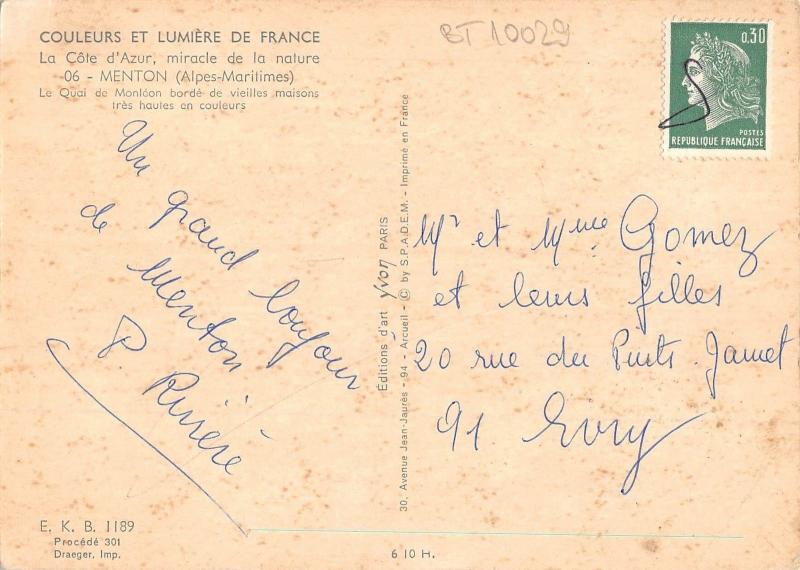 COULEURS ET LUMIÈRE DE FRANCE
La Côte d'Azur, miracle de la nature
06 - MENTON (Alpes-Maritimes)
Le Quai de Monléon bordé de vieilles maisons
très hautes en couleurs
BT 10029
0,30
POSTES
REPUBLIQUE FRANÇAISE
Un grand bonjour
de Menton
P. Rivière
Editions d'art Yvon PARIS
30, Avenue Jean-Jaurès - 94 - Arcueil - © by S.P.A.D.E.M. - Imprimé en France
Mr et Mme Gomez
et leurs filles
20 rue du Puits Jamet
91 Evry
E. K. B. 1189
Procédé 301
Draeger, Imp.
6 10 H.